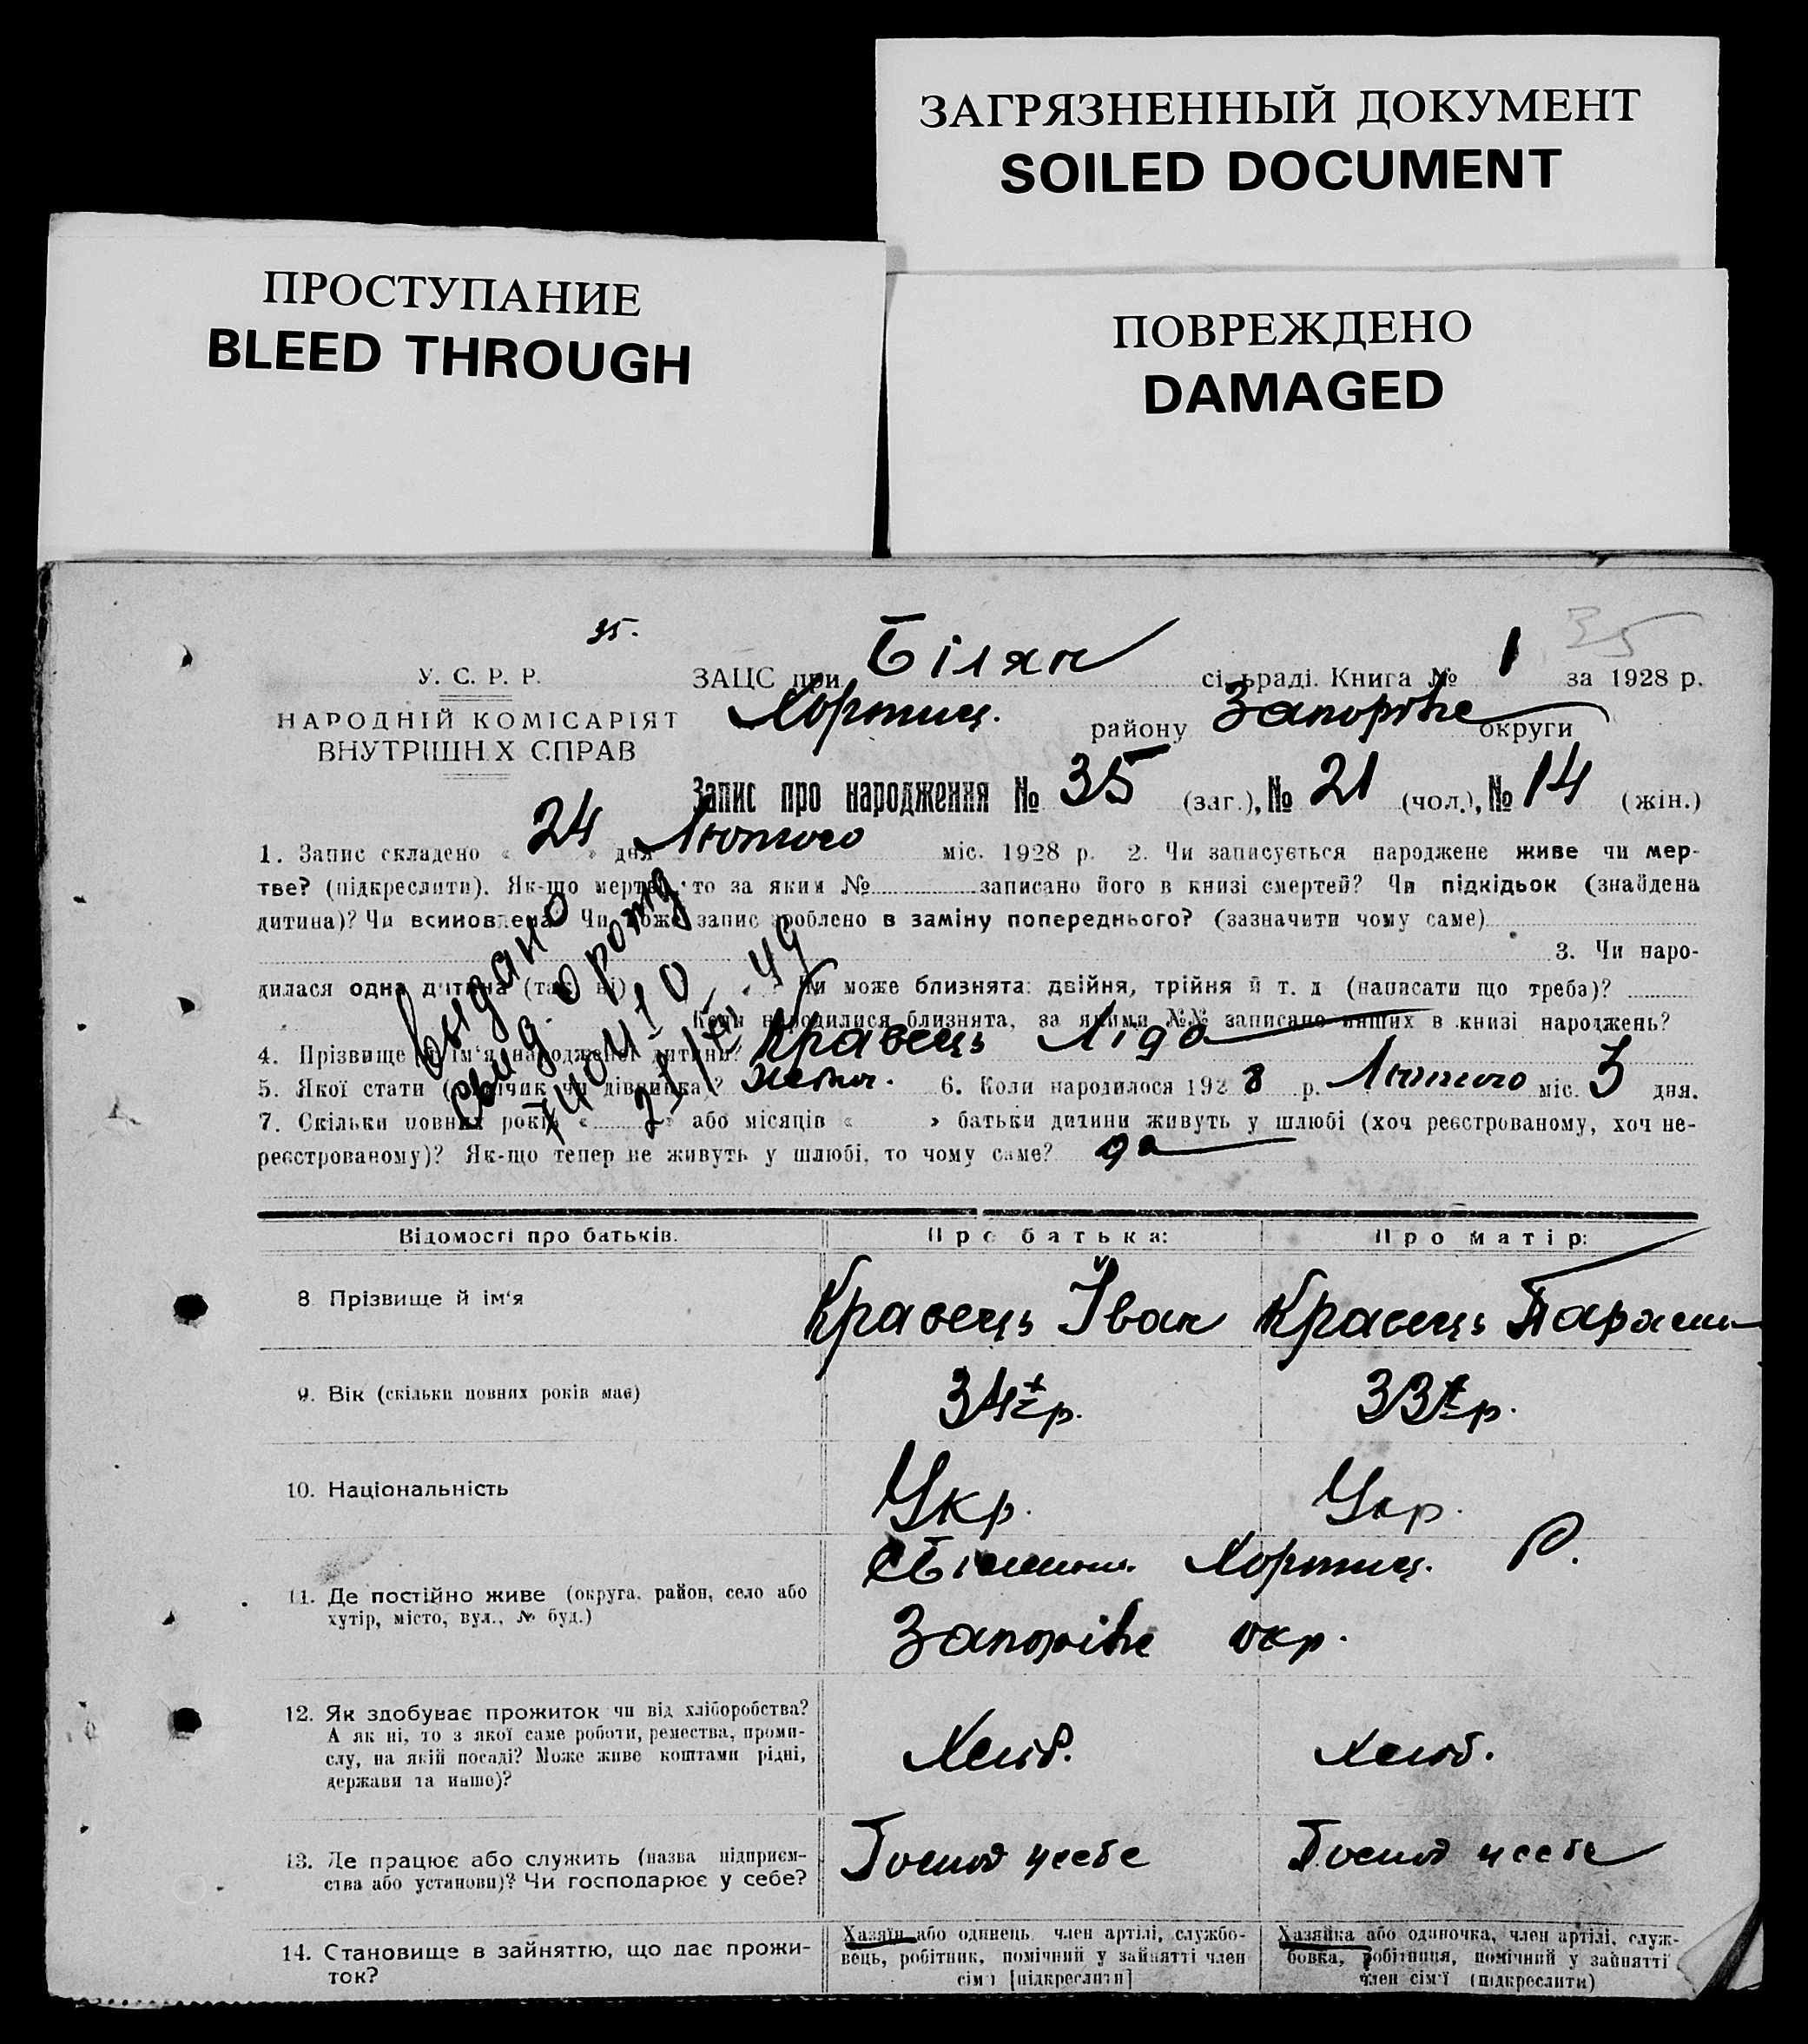 ЗАГРЯЗНЕННЫЙ ДОКУМЕНТ
SOILED DOCUMENT
ПРОСТУПАНИЕ
BLEED THROUGH
ПОВРЕЖДЕНО
DAMAGED
35.
35
У. С. Р. Р.
НАРОДНІЙ КОМІСАРІЯТ
ВНУТРІШН Х СПРАВ
ЗАЦС при Білян сі ьраді. Книга № 1 за 1928 р.
Хортиц. району Запорізьке округи
Запис про народження № 35 (заг.), № 21 (чол.), № 14 (жін.)
1. Запис складено « 24 » дня Лютого міс. 1928 р. 2. Чи записується народжене живе чи мер-
тве? (підкреслити). Як-що мертве, то за яким № записано його в книзі смертей? Чи підкідьок (знайдена
дитина)? Чи всиновлена? Чи може запис зроблено в заміну попереднього? (зазначити чому саме)
3. Чи наро-
дилася одна дитина (так, ні) Чи може близнята: двійня, трійня й т. д. (написати що треба)?
Коли народилися близнята, за якими №№ записано инших в книзі народжень?
4. Прізвище й ім'я народженої дитини? Кравець Ліда
5. Якої стати (хлопчик чи дівчинка)? жетч. 6. Коли народилося 1928 р. Лютого міс. 3 дня.
7. Скільки повних років « » або місяців « » батьки дитини живуть у шлюбі (хоч реєстрованому, хоч не-
реєстрованому)? Як-що тепер не живуть у шлюбі, то чому саме? да
Выдано
свид. о рожд
Відомості про батьків. Про батька: Про матір:
8 Прізвище й ім'я Кравець Іван Кравець Параска
9. Вік (скільки повних років має) 34 р. 33 р.
10. Національність Укр. Укр.
Хортиц. Р.
11. Де постійно живе (округа, район, село або
хутір, місто, вул., № буд.)
Запорізьке окр.
12. Як здобуває прожиток чи від хліборобства?
А як ні, то з якої саме роботи, ремества, проми-
слу, на якій посаді? Може живе коштами рідні,
держави та инше)?
Хліб. хліб.
13. Де працює або служить (назва підприєм-
ства або установи)? Чи господарює у себе?
Господ у себе Господ у себе
14. Становище в зайняттю, що дає прожи-
ток?
Хазяїн або одинець, член артілі, службо-
вець, робітник, помічний у зайнятті член
сім'ї [підкреслити]
Хазяйка або одиночка, член артілі, служ-
бовка, робітниця, помічний у зайнятті
член сім'ї (підкреслити)